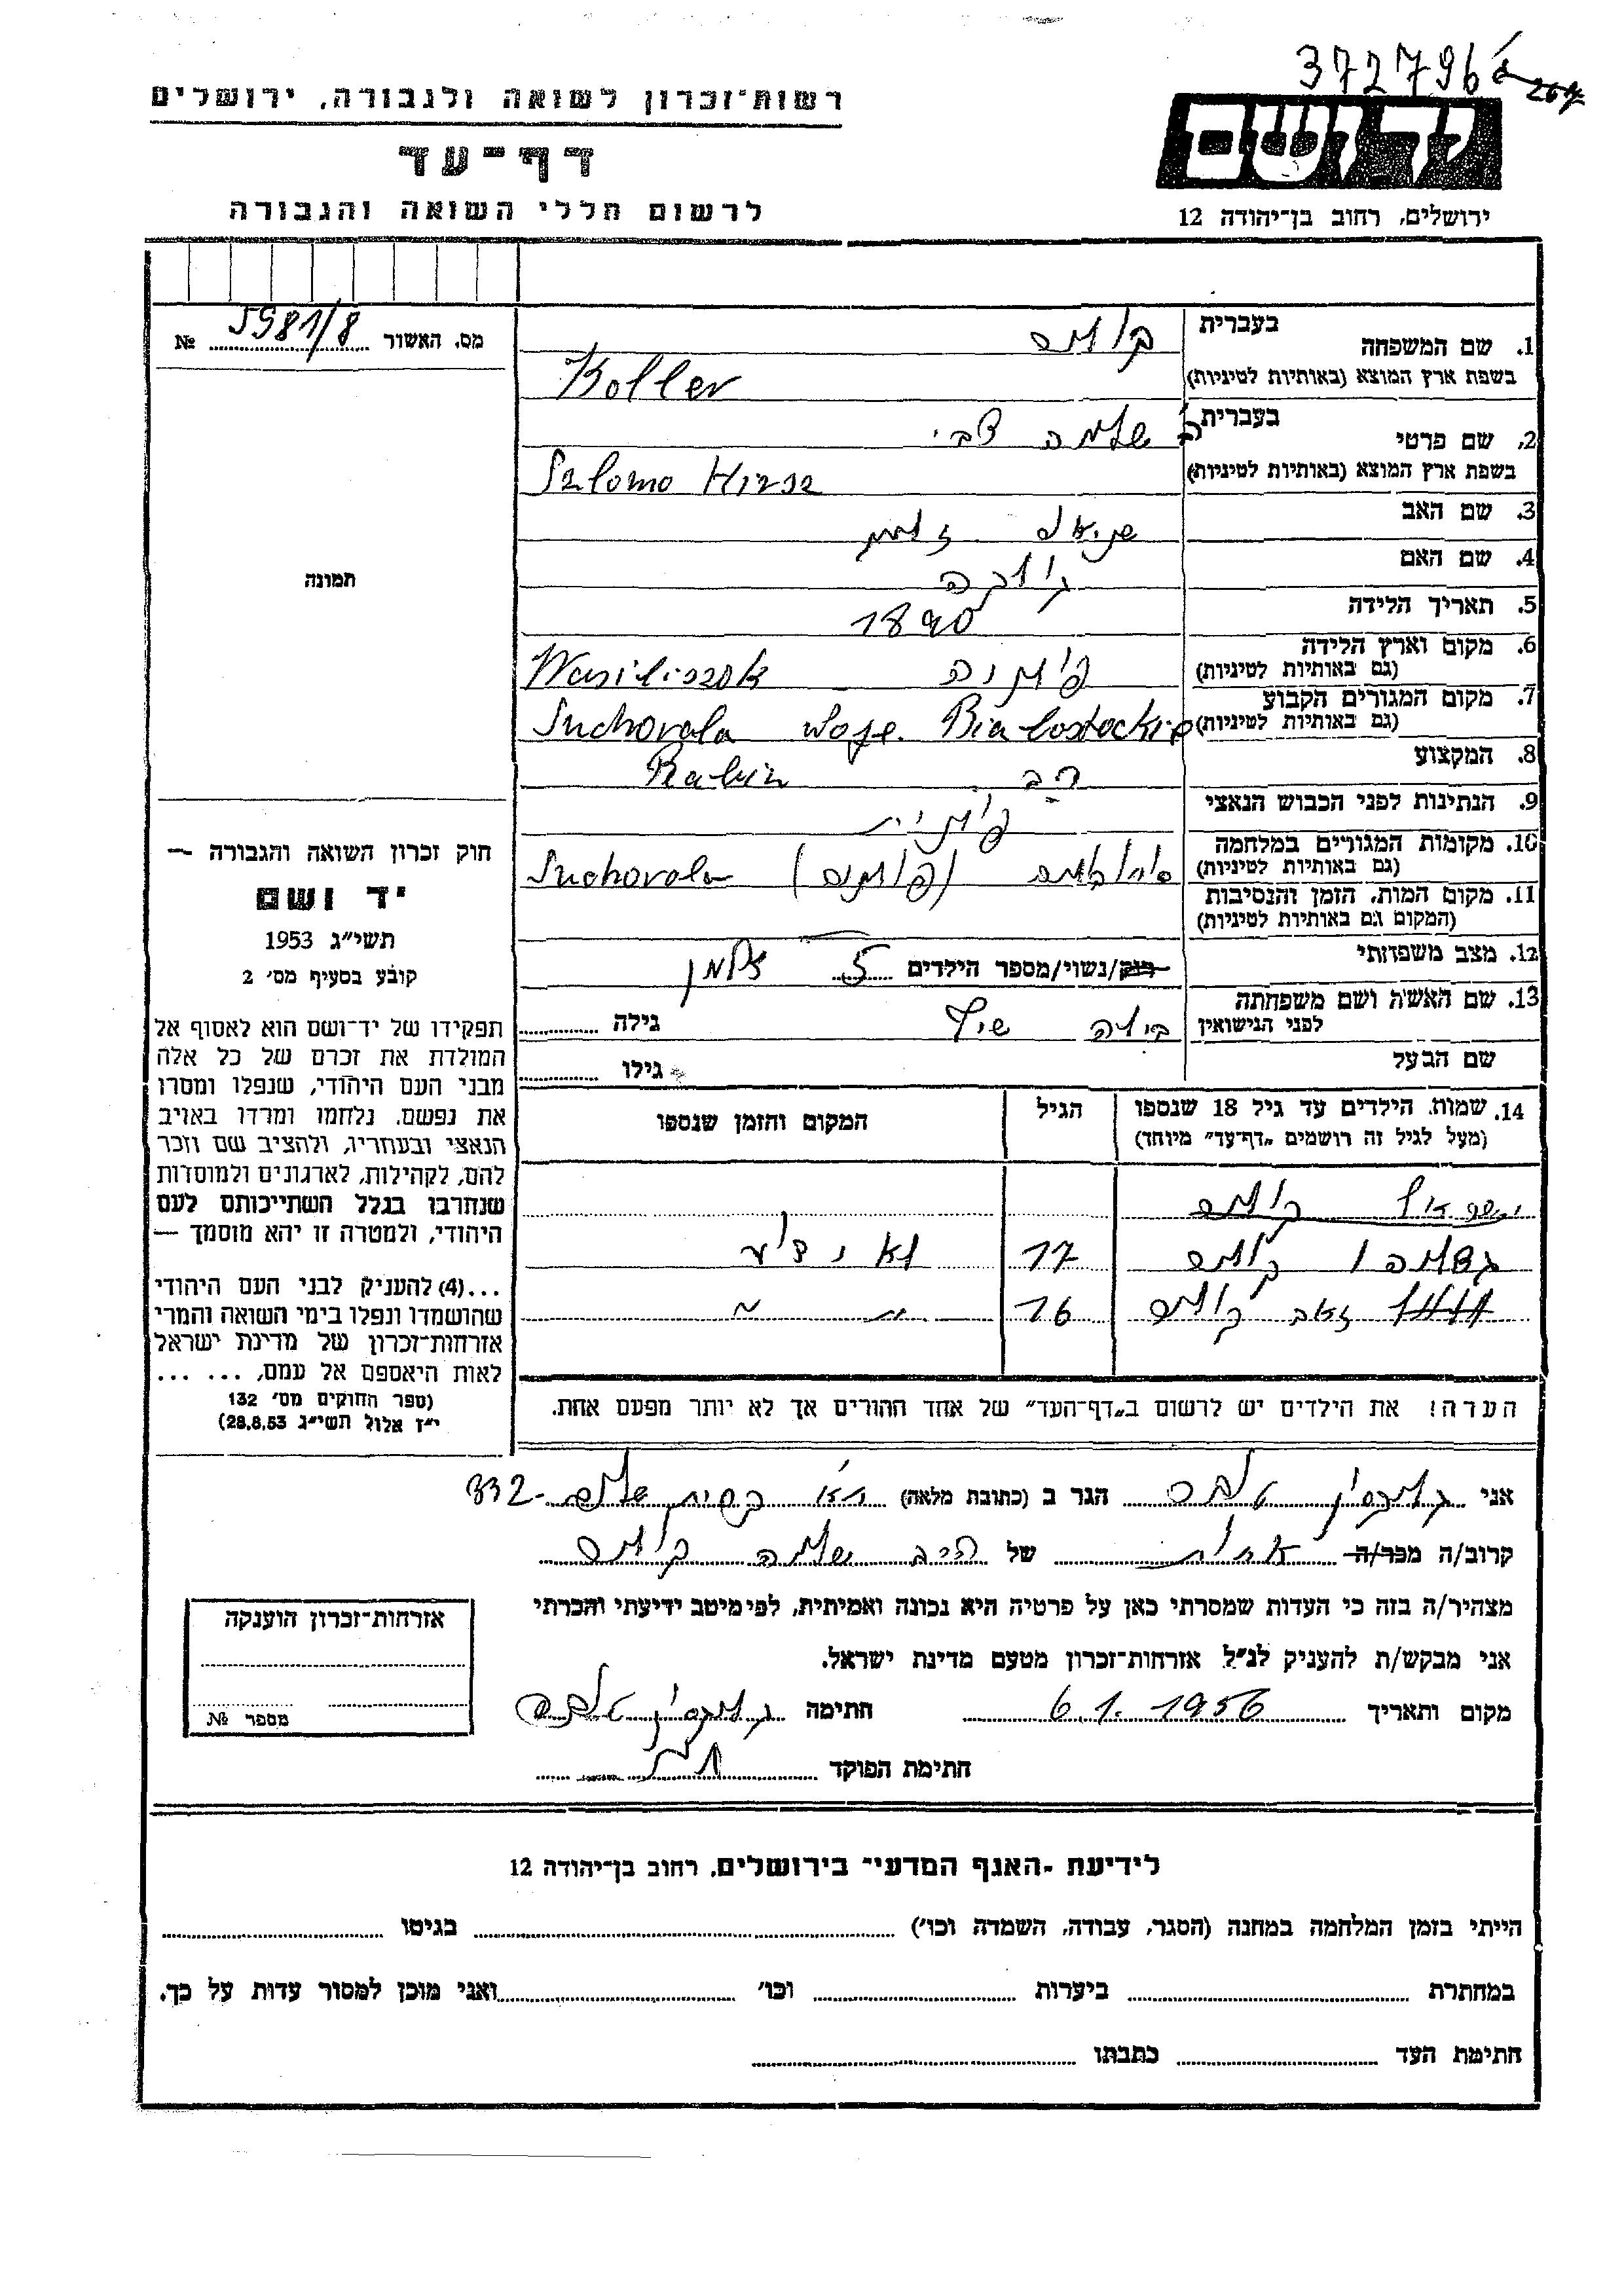 372796
267
רשות־זכרון לשואה ולגבורה, ירושלים
דף־עד
לרשום חללי השואה והגבורה
יד ושם
ירושלים, רחוב בן־יהודה 12
מס. האשור 5981/8 №
תמונה
חוק זכרון השואה והגבורה —
יד ושם
תשי״ג 1953
קובע בסעיף מס׳ 2
תפקידו של יד־ושם הוא לאסוף אל
המולדת את זכרם של כל אלה
מבני העם היהודי, שנפלו ומסרו
את נפשם, נלחמו ומרדו באויב
הנאצי ובעוזריו, ולהציב שם וזכר
להם, לקהילות, לארגונים ולמוסדות
שנחרבו בגלל השתייכותם לעם
היהודי, ולמטרה זו יהא מוסמך —
...(4) להעניק לבני העם היהודי
שהושמדו ונפלו בימי השואה והמרי
אזרחות־זכרון של מדינת ישראל
לאות היאספם אל עמם, ... ...
(ספר החוקים מס׳ 132
י״ז אלול תשי״ג 28.8.53)
1. שם המשפחה בעברית קולר
בשפת ארץ המוצא (באותיות לטיניות) Koller
2. שם פרטי בעברית שלמה צבי
בשפת ארץ המוצא (באותיות לטיניות) Szlomo Hirsz
3. שם האב
4. שם האם
5. תאריך הלידה 1890
6. מקום וארץ הלידה
(גם באותיות לטיניות) פולניה Wasiliszok
7. מקום המגורים הקבוע
(גם באותיות לטיניות) Suchovola woje. Bialostockie
8. המקצוע רב Rabin
9. הנתינות לפני הכבוש הנאצי פולנית
10. מקומות המגורים במלחמה
(גם באותיות לטיניות) Suchovola
11. מקום המות, הזמן והנסיבות
(המקום גם באותיות לטיניות)
12. מצב משפחתי רוק/נשוי/מספר הילדים 5
13. שם האשה ושם משפחתה
לפני הנישואין גילה
שם הבעל גילו
14. שמות הילדים עד גיל 18 שנספו
(מעל לגיל זה רושמים „דף־עד״ מיוחד)
הגיל
המקום והזמן שנספו
ישראל קולר
גדליהו קולר 17 לא ידוע
זאב קולר 16 〃 〃
הערה! את הילדים יש לרשום ב„דף־העד״ של אחד ההורים אך לא יותר מפעם אחת.
אני הגר ב (כתובת מלאה) ת״א קרית שלום 332
קרוב/ה מכר/ה אחות של הרב שלמה קולר
מצהיר/ה בזה כי העדות שמסרתי כאן על פרטיה היא נכונה ואמיתית, לפי מיטב ידיעתי והכרתי
אני מבקש/ת להעניק לנ״ל אזרחות־זכרון מטעם מדינת ישראל.
מקום ותאריך 6.1.1956 חתימה
חתימת הפוקד
אזרחות־זכרון הוענקה
מספר №
לידיעת „האגף המדעי״ בירושלים, רחוב בן־יהודה 12
הייתי בזמן המלחמה במחנה (הסגר, עבודה, השמדה וכו׳) בגיטו
במחתרת ביערות וכו׳ ואני מוכן למסור עדות על כך.
חתימת העד כתבתו